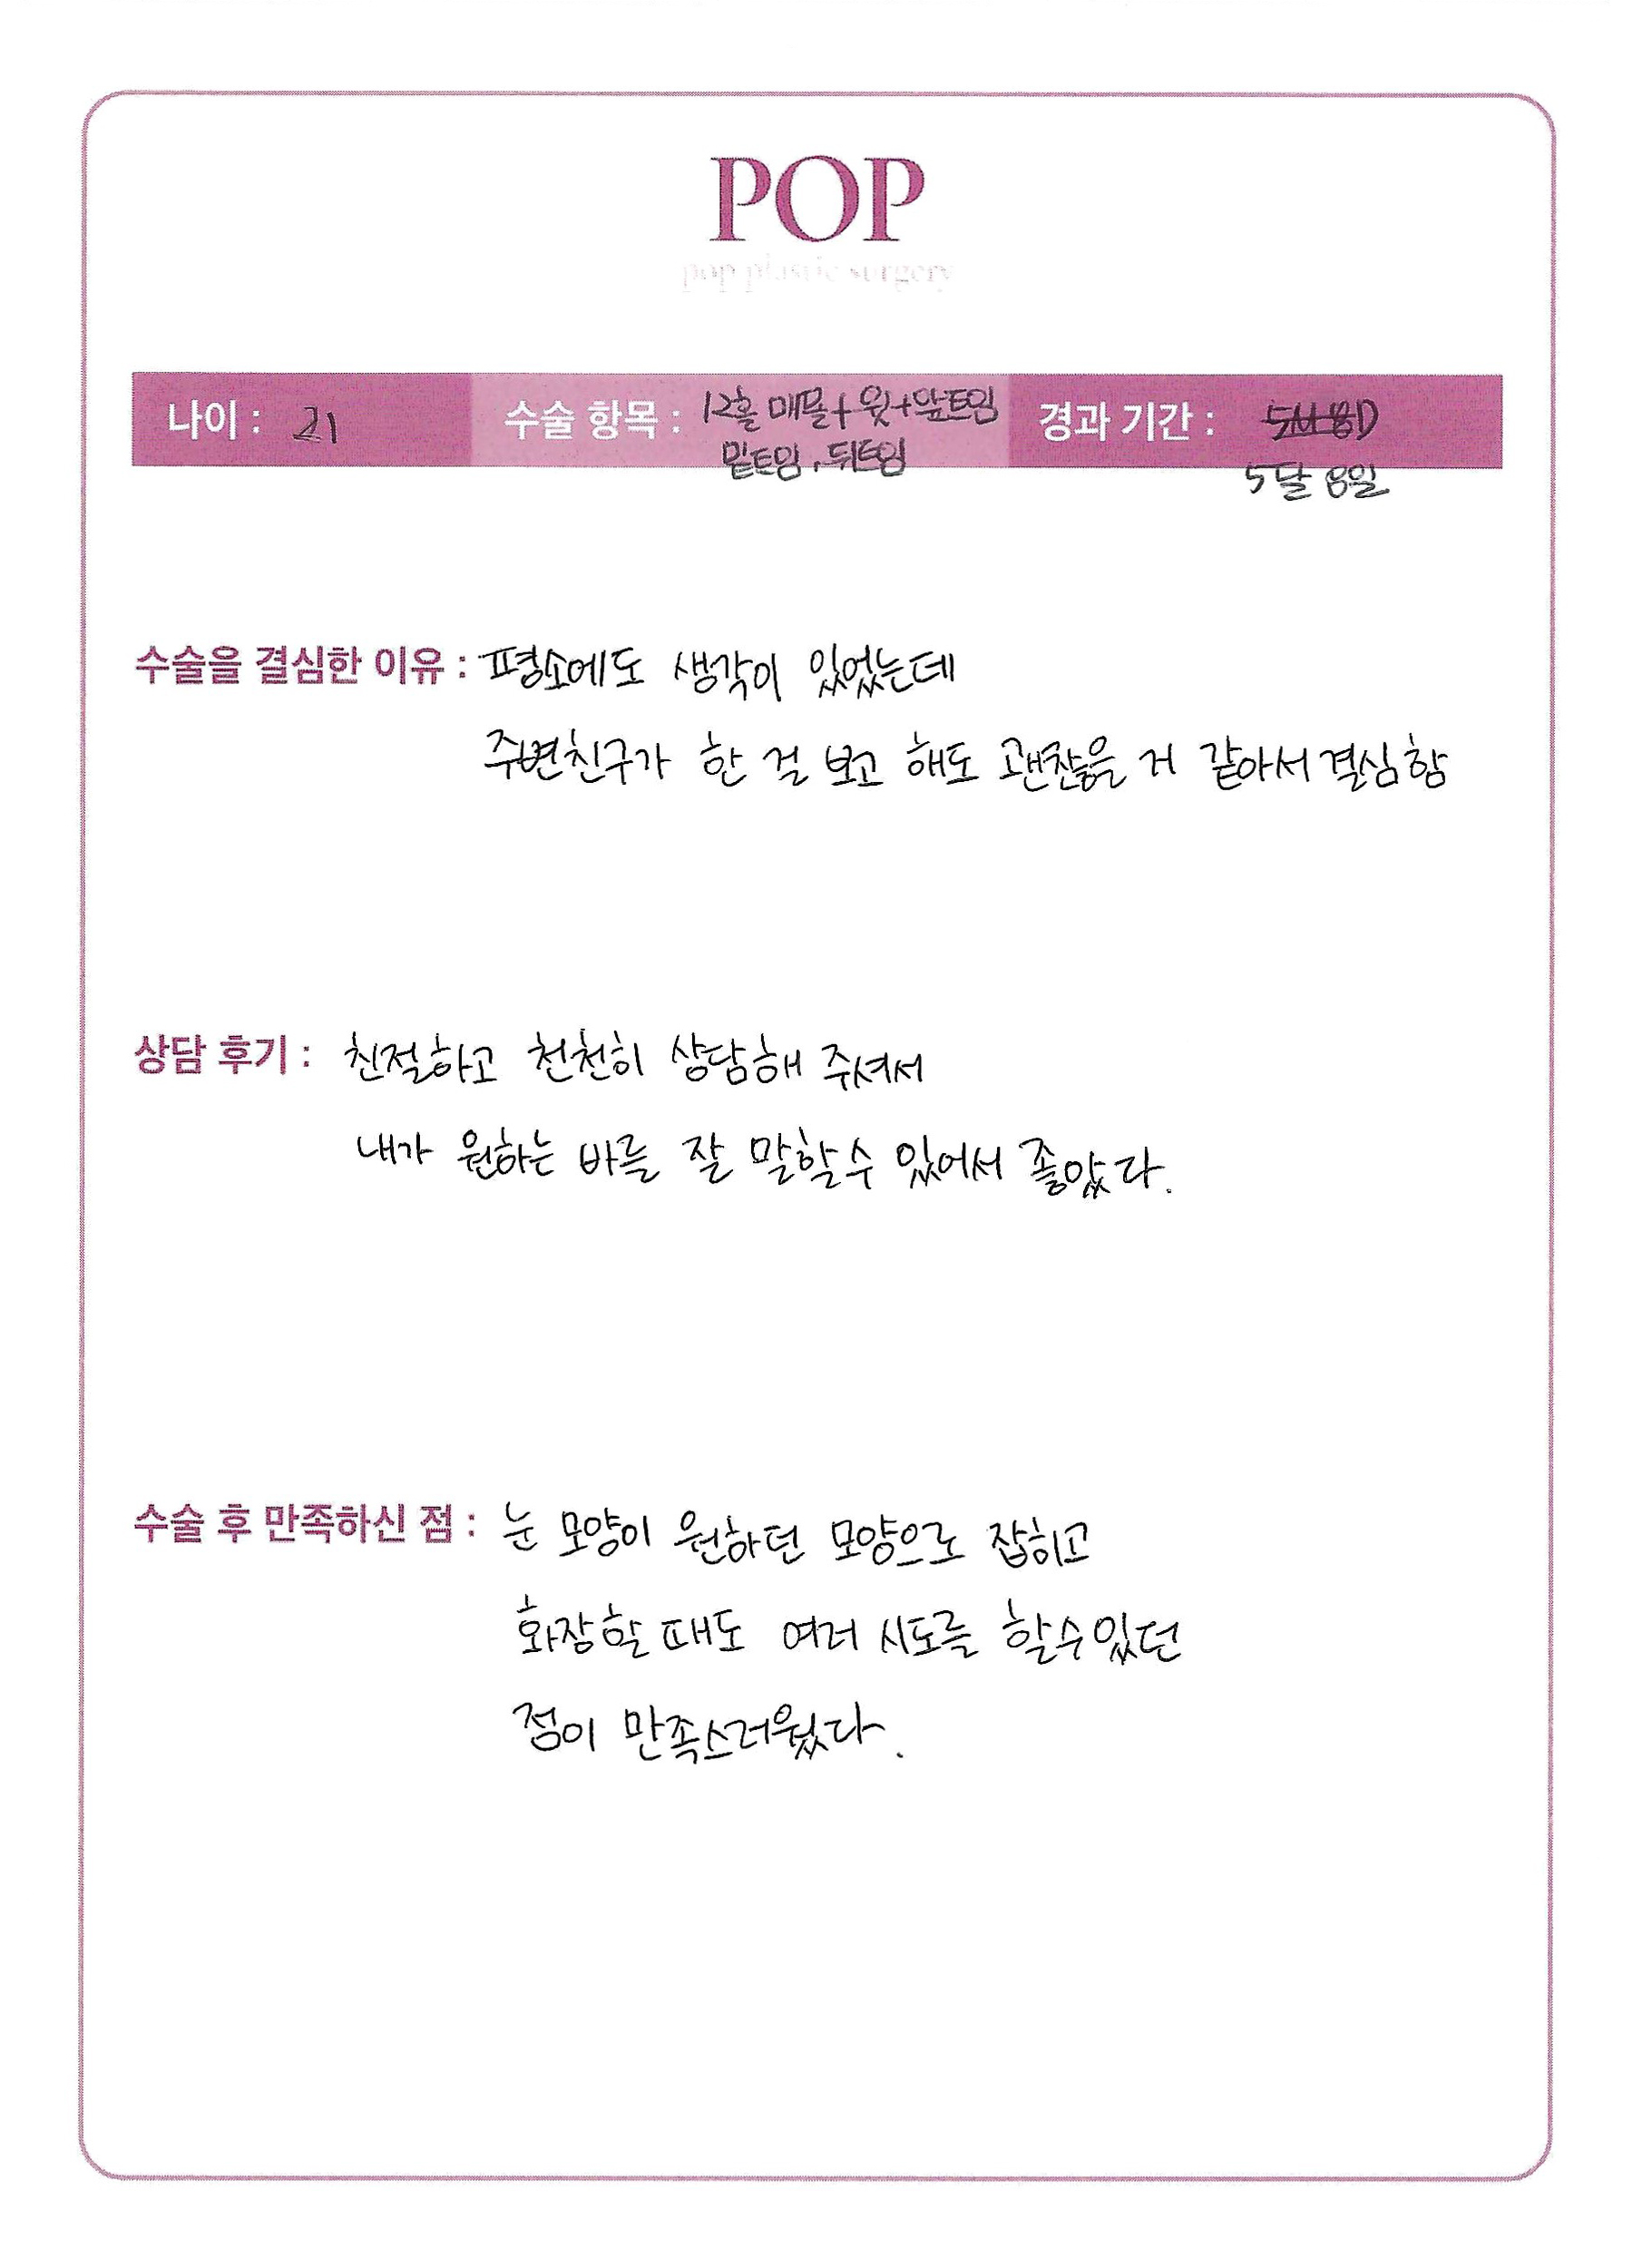 POP
pop plastic surgery
나이 : 21 수술 항목 : 12홀 매몰+윗+앞트임 경과 기간 : 5M 8D
밑트임, 뒤트임
5달 8일
수술을 결심한 이유 : 평소에도 생각이 있었는데
주변친구가 한 걸 보고 해도 괜찮을 거 같아서 결심함
상담 후기 : 친절하고 천천히 상담해 주셔서
내가 원하는 바를 잘 말할수 있어서 좋았다.
수술 후 만족하신 점 : 눈 모양이 원하던 모양으로 잡히고
화장할 때도 여러 시도를 할수있던
점이 만족스러웠다.